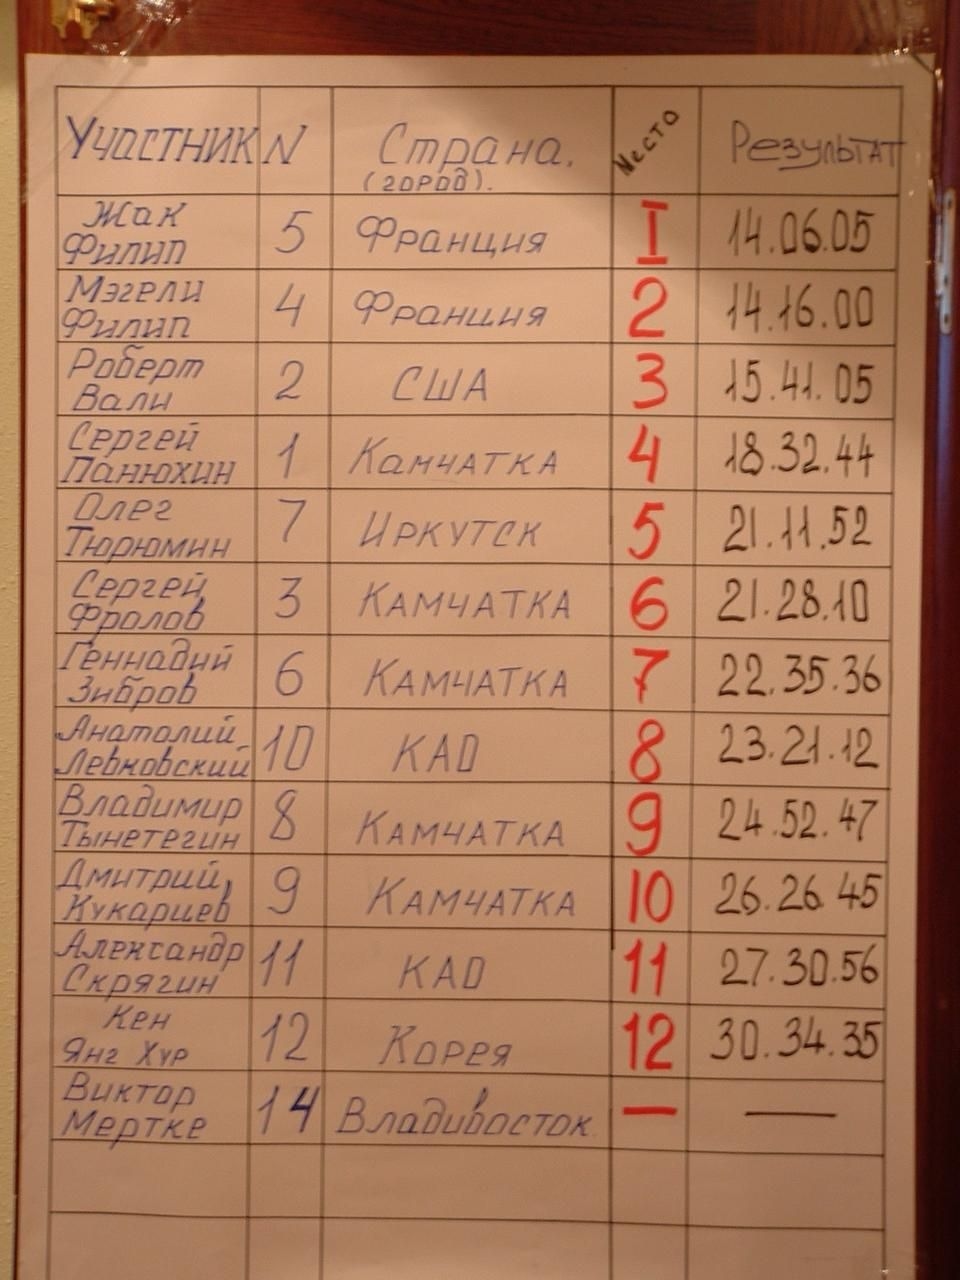 Участник N Страна. Место Результат
(город).
Жак
Филип 5 Франция I 14.06.05
Мэгели
Филип 4 Франция 2 14.16.00
Роберт
Вали 2 США 3 15.41.05
Сергей
Панюхин 1 Камчатка 4 18.32.44
Олег
Тюрюмин 7 Иркутск 5 21.11.52
Сергей
Фролов 3 Камчатка 6 21.28.10
Геннадий
Зибров 6 Камчатка 7 22.35.36
Анатолий
Левковский 10 КАО 8 23.21.12
Владимир
Тынетегин 8 Камчатка 9 24.52.47
Дмитрий
Кукарцев 9 Камчатка 10 26.26.45
Александр
Скрягин 11 КАО 11 27.30.56
Кен
Янг Хур 12 Корея 12 30.34.35
Виктор
Мертке 14 Владивосток. — —